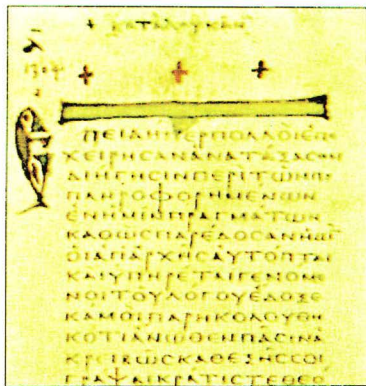 + ΚΑΤΑ ΛΟΥΚΑΝ
+ + +
ΕΠΕΙΔΗΠΕΡΠΟΛΛΟΙΕΠΕ
ΧΕΙΡΗϹΑΝΑΝΑΤΑΞΑϹΘΑΙ
ΔΙΗΓΗϹΙΝΠΕΡΙΤΩΝΠΕ
ΠΛΗΡΟΦΟΡΗΜΕΝΩΝ
ΕΝΗΜΙΝΠΡΑΓΜΑΤΩΝ
ΚΑΘΩϹΠΑΡΕΔΟϹΑΝΗΜΙΝ
ΟΙΑΠΑΡΧΗϹΑΥΤΟΠΤΑΙ
ΚΑΙΥΠΗΡΕΤΑΙΓΕΝΟΜΕ
ΝΟΙΤΟΥΛΟΓΟΥΕΔΟΞΕ
ΚΑΜΟΙΠΑΡΗΚΟΛΟΥΘΗ
ΚΟΤΙΑΝΩΘΕΝΠΑϹΙΝΑ
ΚΡΕΙΒΩϹΚΑΘΕΞΗϹϹΟΙ
ΓΡΑΨΑΙΚΡΑΤΙϹΤΕΘΕΟ